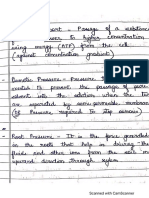 ent - Passage of a substance
ower to higher concentration
using energy (ATP) from the cell
(against concentration gradient)
Osmotic Pressure - Pressure
exerted to prevent the passage of pure
solvent into the solution when the two
are separated by semi-permeable membrane
(Pressure required to stop osmosis)
Root Pressure - It is the force generated
in the roots that help in driving the
fluids and other ions from the soil in
upward direction through xylem
Scanned with CamScanner